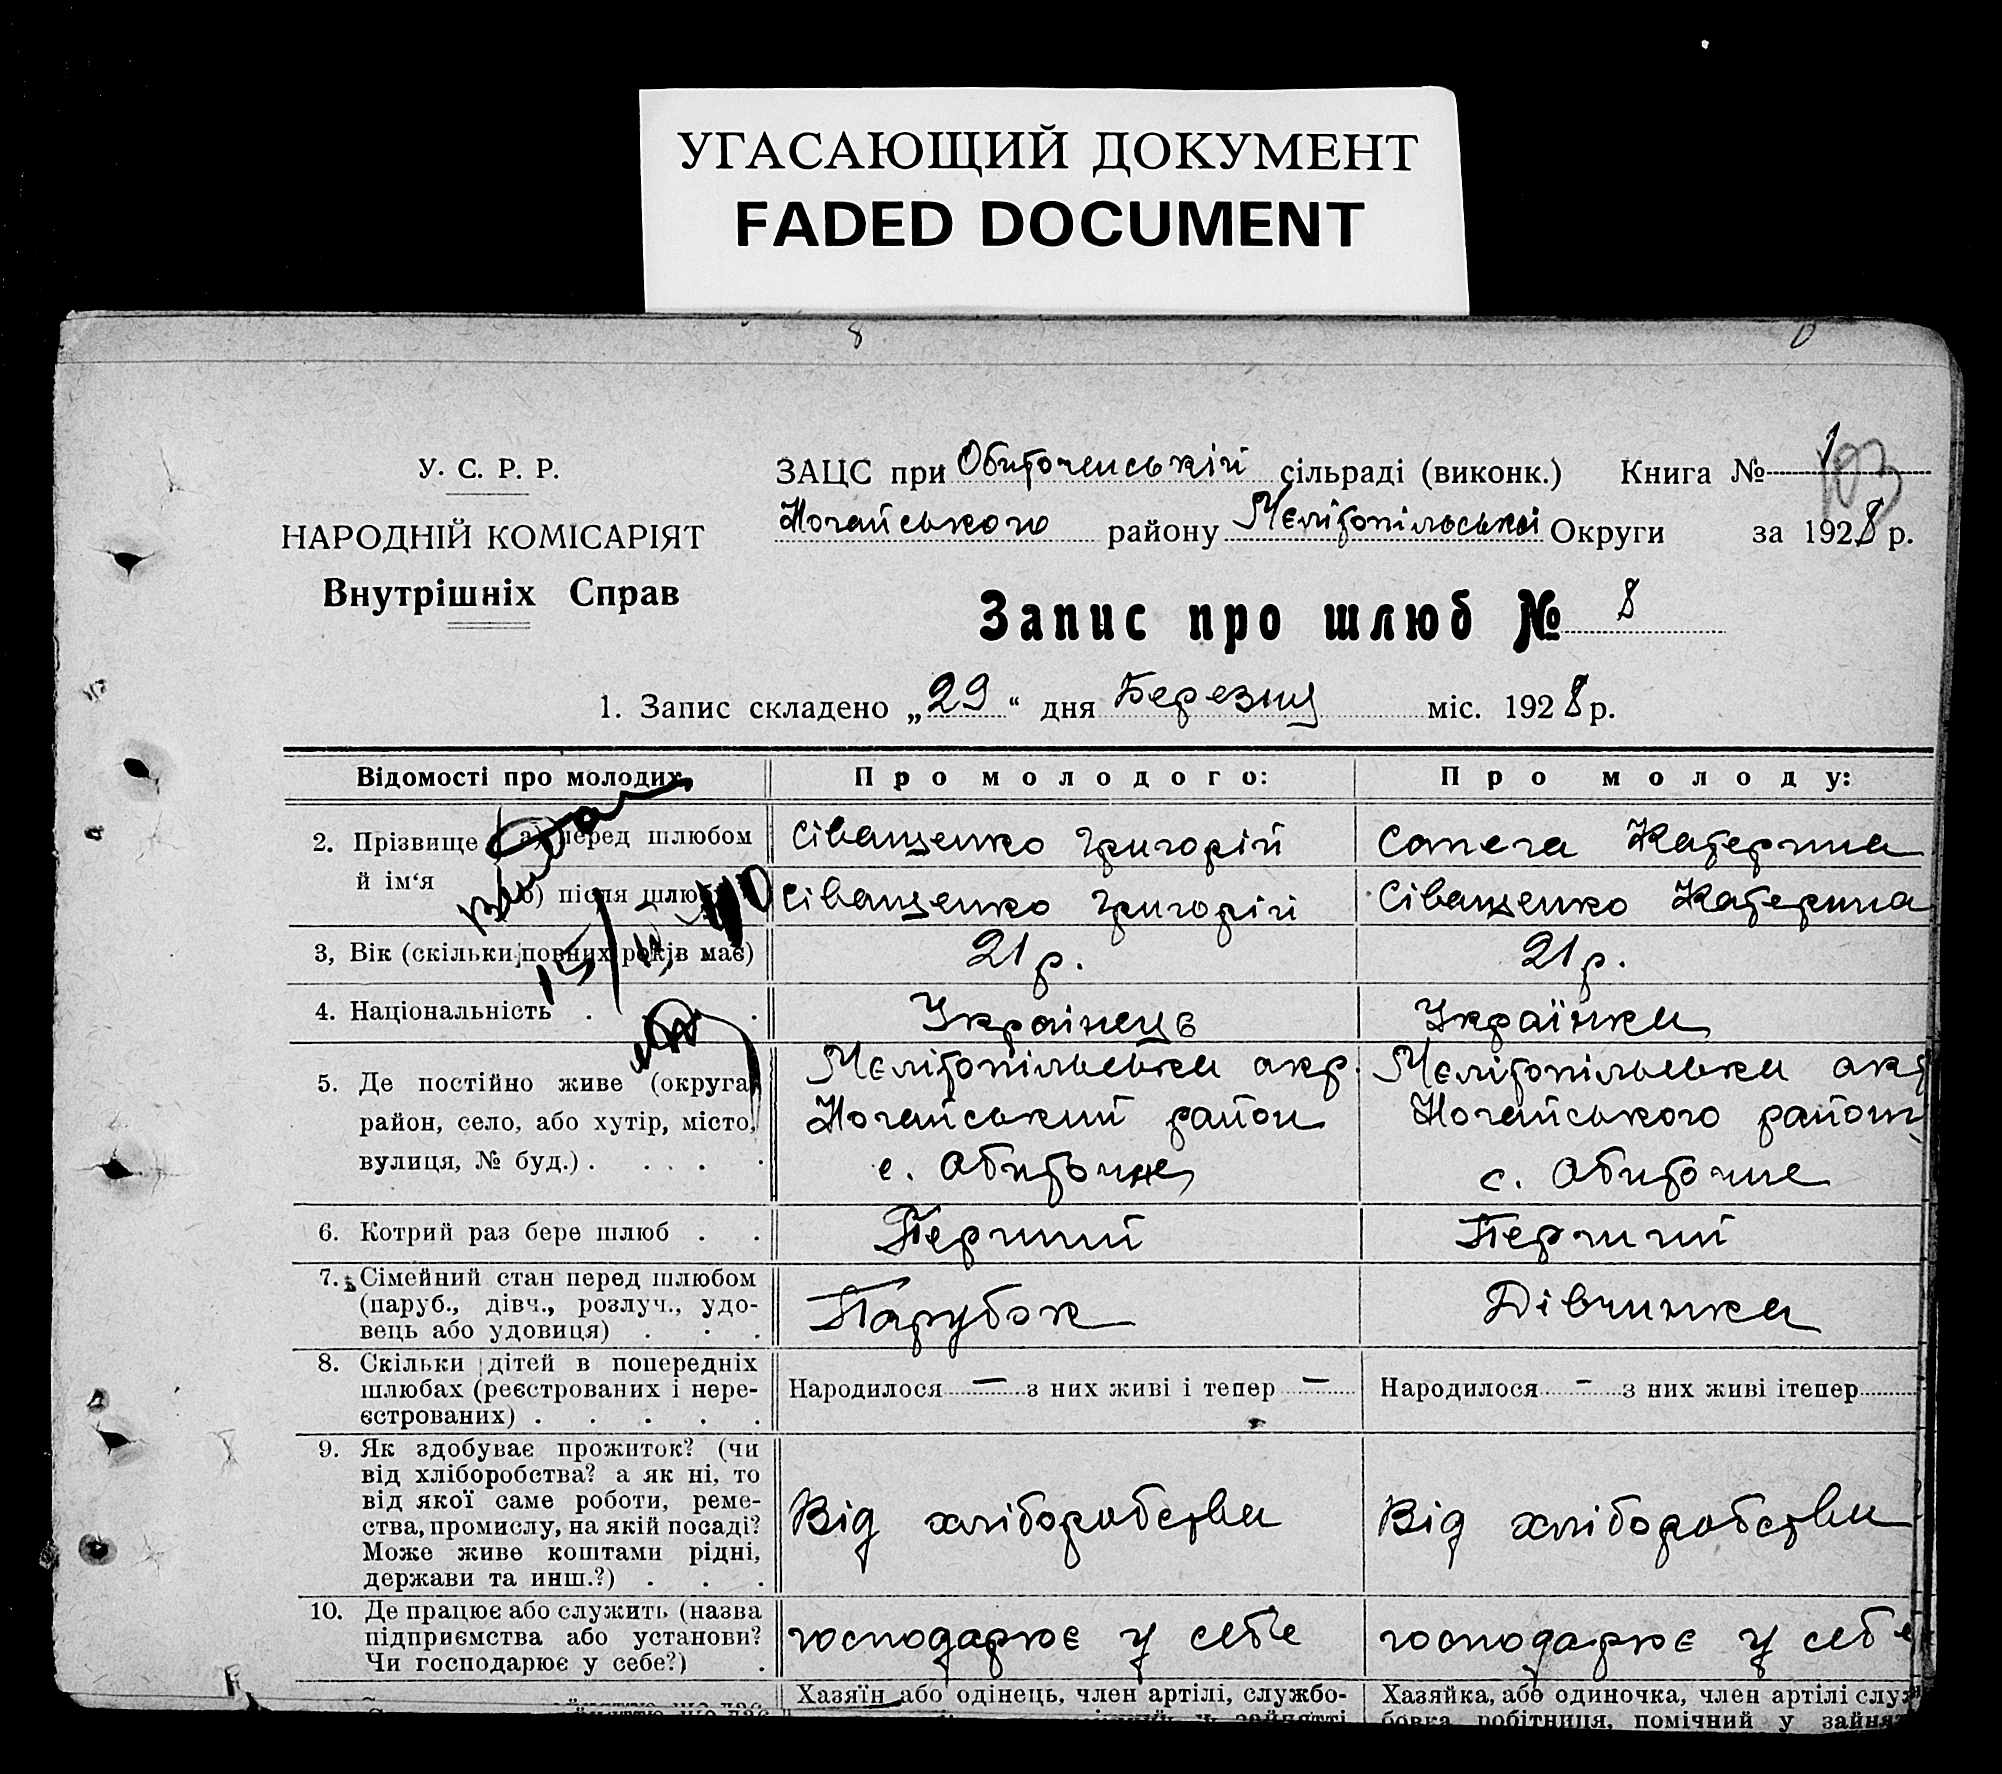 УГАСАЮЩИЙ ДОКУМЕНТ
FADED DOCUMENT
8
У. С. Р. Р.
НАРОДНІЙ КОМІСАРІЯТ
Внутрішніх Справ
ЗАЦС при Обиточенській сільраді (виконк.) Книга № 1
103
Ногайського району Мелітопільської Округи за 1928 р.
Запис про шлюб № 8
1. Запис складено „29“ дня Березня міс. 1928 р.
Відомості про молодих
Про молодого:
Про молоду:
2. Прізвище й ім‘я
а) перед шлюбом
Сіващенко Григорій
Сапега Катерина
б) після шлюбу
Сіващенко Григорій
Сіващенко Катерина
15/ 40
3, Вік (скільки повних років має)
21 р.
21 р.
4. Національність . .
Українець
Українка
5. Де постійно живе (округа,
район, село, або хутір, місто,
вулиця, № буд.) . . . . .
Мелітопільська окр.
Ногайський район
с. Обиточне
Мелітопільська окр
Ногайського району
с. Обиточне
6. Котрий раз бере шлюб . .
Перший
Перший
7. Сімейний стан перед шлюбом
(паруб., дівч., розлуч., удо-
вець або удовиця) . . .
Парубок
Дівчинка
8. Скільки дітей в попередніх
шлюбах (реєстрованих і нере-
єстрованих) . . . . .
Народилося — з них живі і тепер —
Народилося - з них живі ітепер
9. Як здобуває прожиток? (чи
від хліборобства? а як ні, то
від якої саме роботи, реме-
ства, промислу, на якій посаді?
Може живе коштами рідні,
держави та инш.?) . . .
Від хліборобства
Від хліборобства
10. Де працює або служить (назва
підприємства або установи?
Чи господарює у себе?) .
господарює у себе
господарює у себе
Хазяїн або одінець, член артілі, службо-
Хазяйка, або одиночка, член артілі служ
бовка робітниця, помічний у зайня